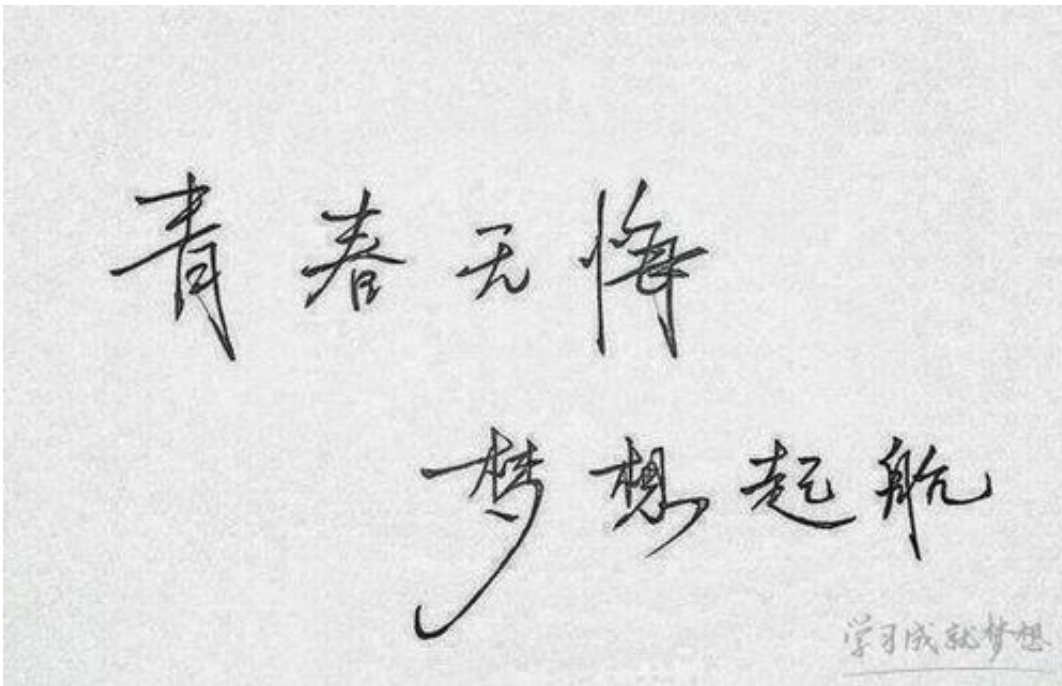 青春无悔
梦想起航
学习成就梦想